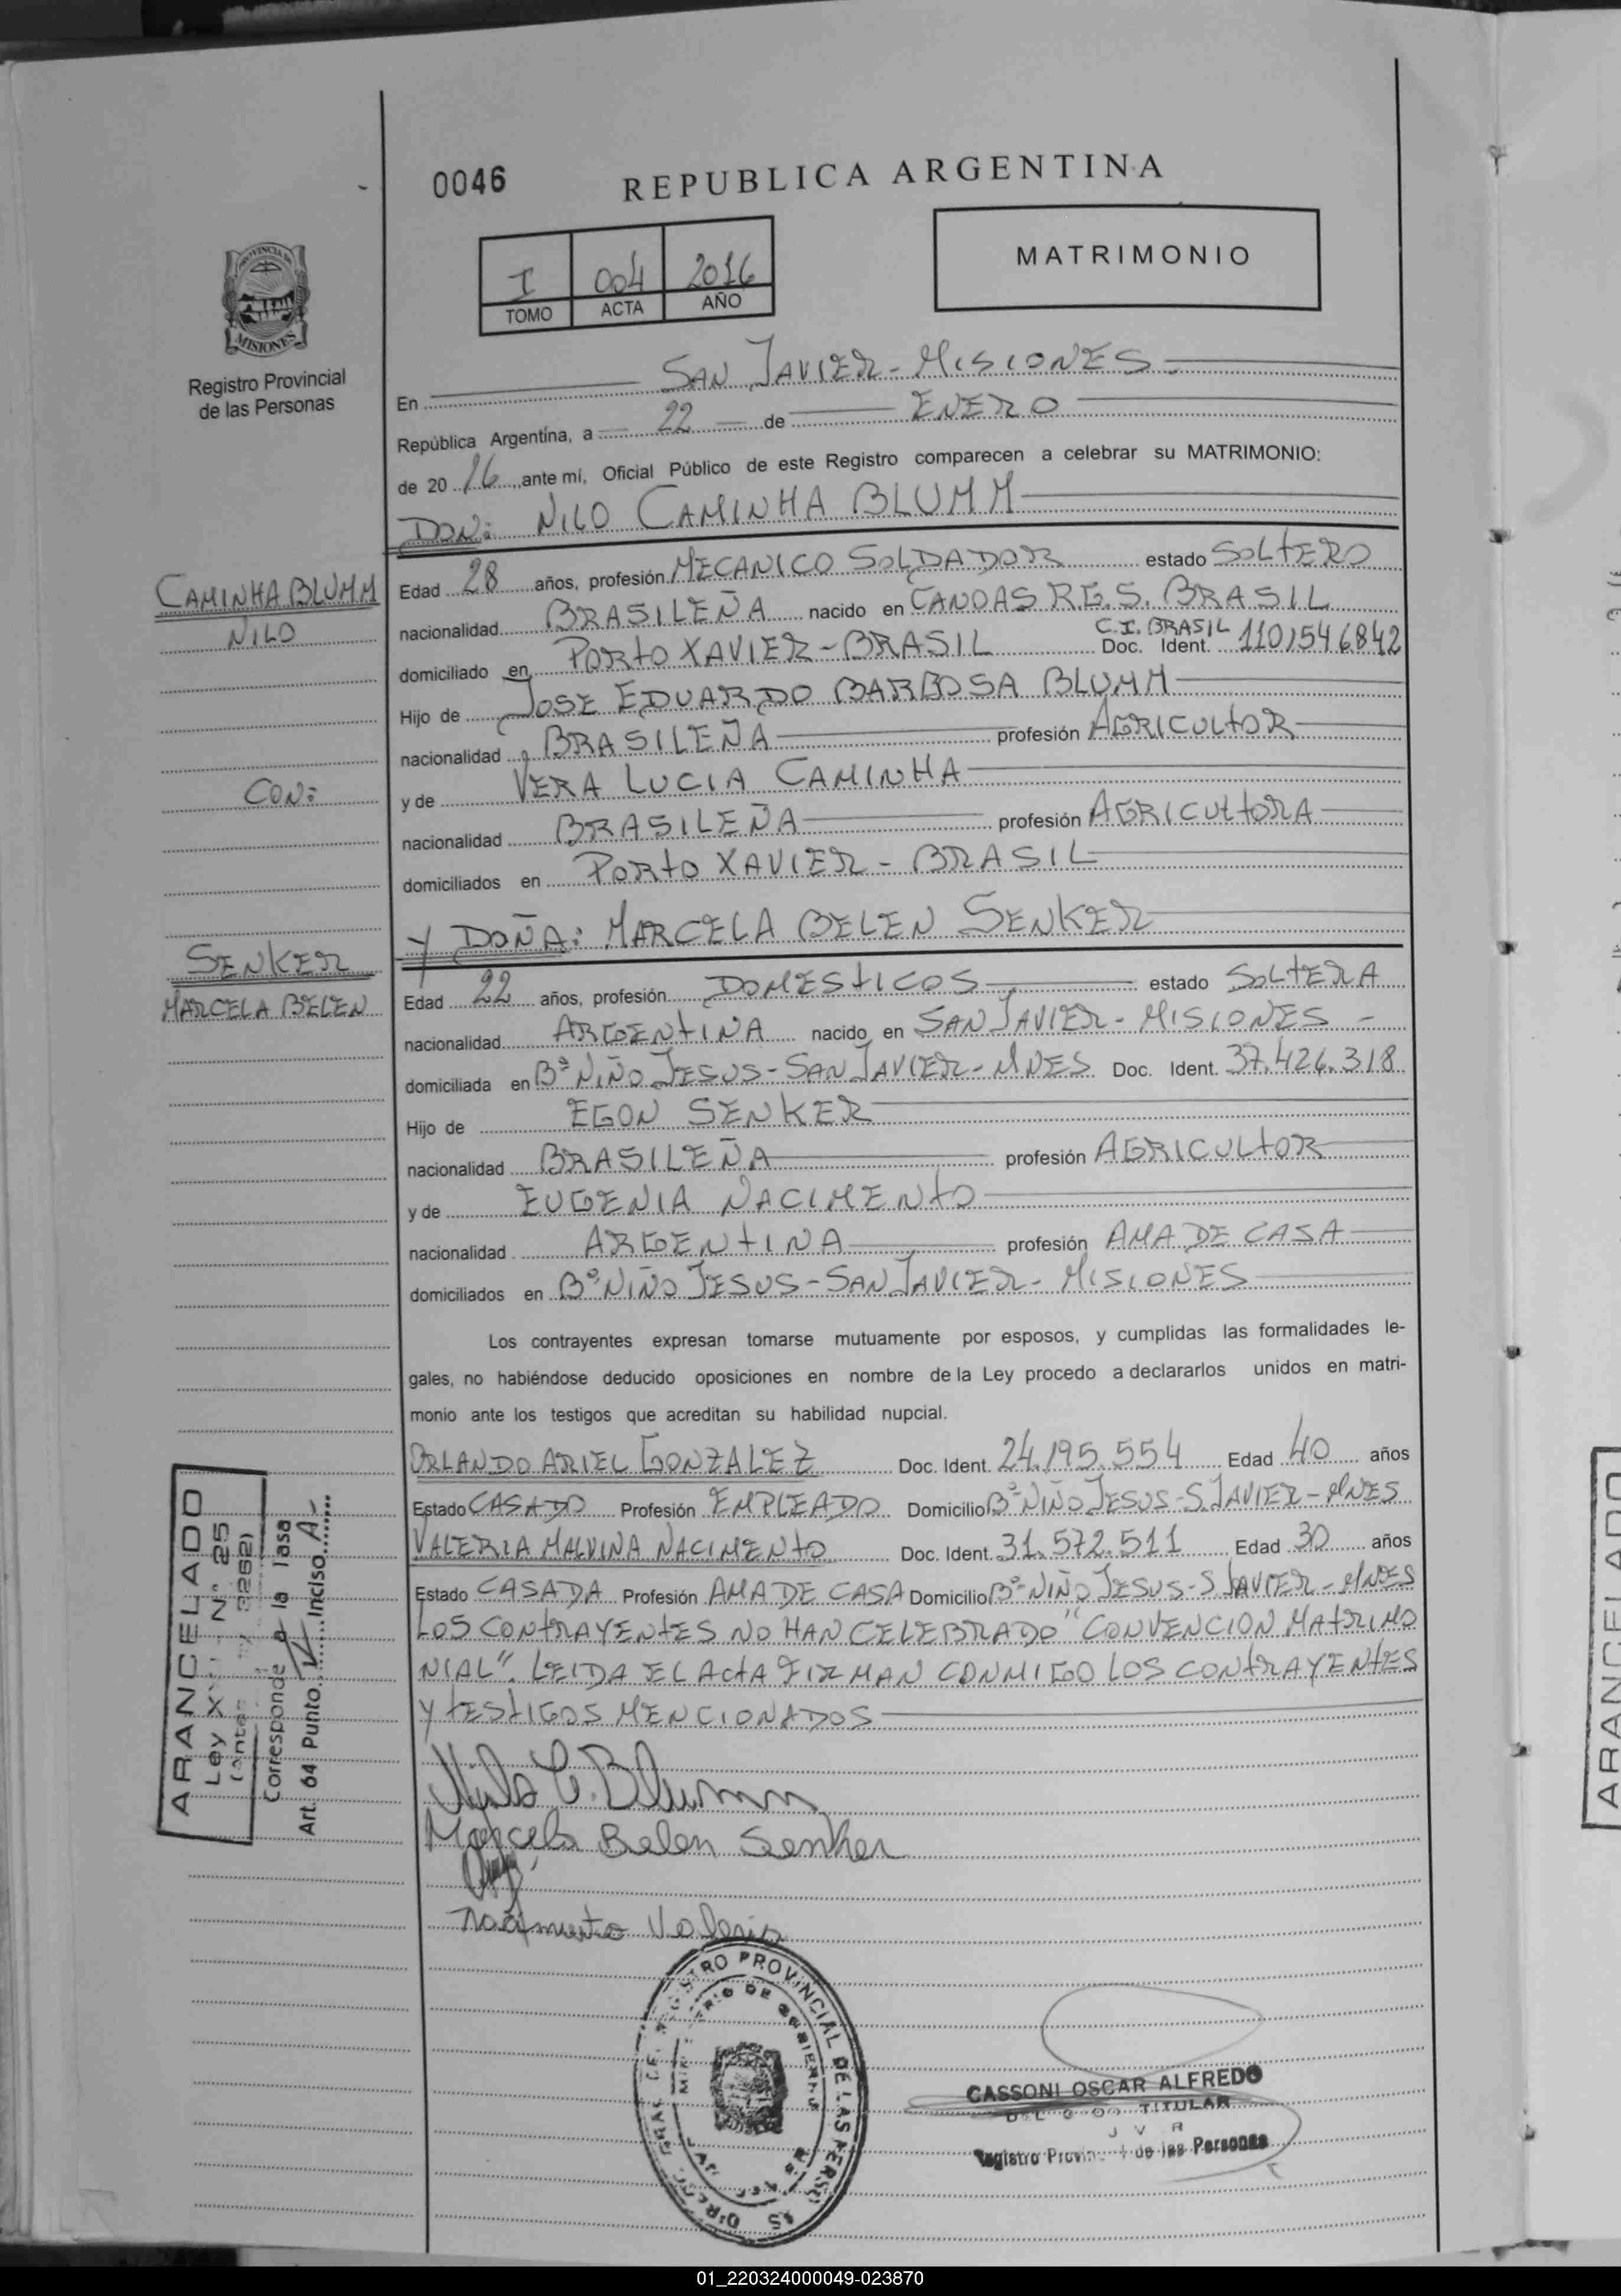 0046
REPUBLICA ARGENTINA
I 004 2016
TOMO ACTA AÑO
MATRIMONIO
PROVINCIA DE
MISIONES
Registro Provincial
de las Personas
En SAN JAVIER - MISIONES.
República Argentina, a 22 de ENERO
de 20 16 ante mí, Oficial Público de este Registro comparecen a celebrar su MATRIMONIO:
DON: NILO CAMINHA BLUMM
CAMINHA BLUMM
NILO
CON:
SENKER
MARCELA BELEN
Edad 28 años, profesión MECANICO SOLDADOR estado SOLTERO
nacionalidad BRASILEÑA nacido en CANOAS R.G.S. BRASIL
domiciliado en PORTO XAVIER - BRASIL C.I. BRASIL Doc. Ident. 1101546842
Hijo de JOSE EDUARDO BARBOSA BLUMM
nacionalidad BRASILEÑA profesión AGRICULTOR
y de VERA LUCIA CAMINHA
nacionalidad BRASILEÑA profesión AGRICULTORA
domiciliados en PORTO XAVIER - BRASIL
Y DOÑA: MARCELA BELEN SENKER
Edad 22 años, profesión DOMESTICOS estado SOLTERA
nacionalidad ARGENTINA nacido en SAN JAVIER - MISIONES -
domiciliada en Bº NIÑO JESUS - SAN JAVIER - MNES Doc. Ident. 37.426.318
Hijo de EGON SENKER
nacionalidad BRASILEÑA profesión AGRICULTOR
y de EUGENIA NACIMENTO
nacionalidad ARGENTINA profesión AMA DE CASA
domiciliados en Bº NIÑO JESUS - SAN JAVIER - MISIONES
Los contrayentes expresan tomarse mutuamente por esposos, y cumplidas las formalidades le-
gales, no habiéndose deducido oposiciones en nombre de la Ley procedo a declararlos unidos en matri-
monio ante los testigos que acreditan su habilidad nupcial.
ORLANDO ARIEL GONZALEZ Doc. Ident. 24.195.554 Edad 40 años
Estado CASADO Profesión EMPLEADO Domicilio Bº NIÑO JESUS - S. JAVIER - MNES
VALERIA MALVINA NACIMENTO Doc. Ident. 31.572.511 Edad 30 años
Estado CASADA Profesión AMA DE CASA Domicilio Bº NIÑO JESUS - S. JAVIER - MNES
LOS CONTRAYENTES NO HAN CELEBRADO "CONVENCION MATRIMO
NIAL". LEIDA EL ACTA FIRMAN CONMIGO LOS CONTRAYENTES
Y TESTIGOS MENCIONADOS
ARANCELADO
Ley X Nº 25
Corresponde a la Tasa
Art. 64 Punto Inciso A
Nilo C. Blumm
Marcela Belen Senker
Nacimento Valeria
REGISTRO PROVINCIAL DE LAS PERSONAS
CASSONI OSCAR ALFREDO
TITULAR
Registro Provincial de las Personas
ARANCELADO
01_220324000049-023870